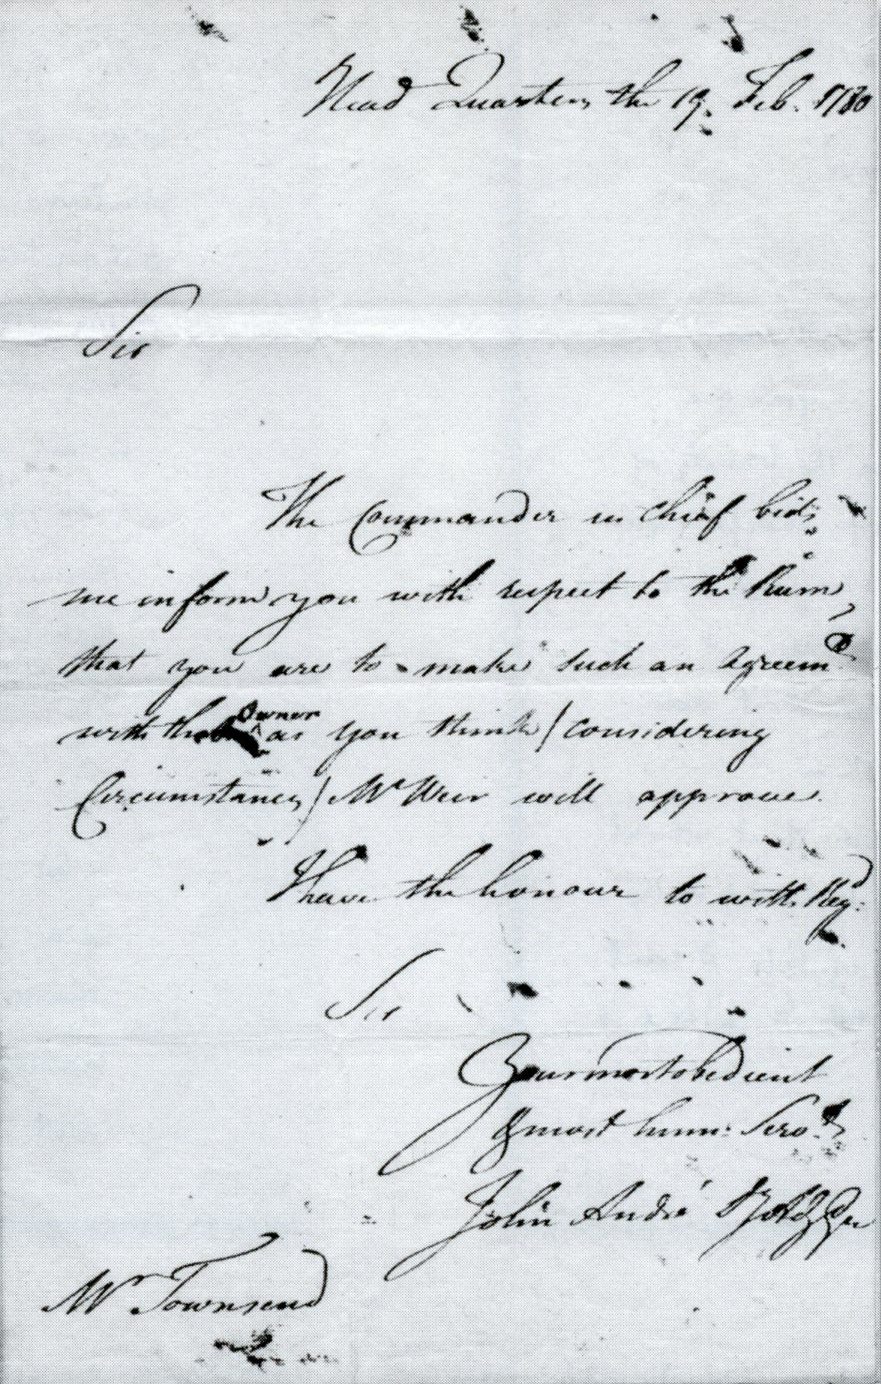 Head Quarters the 19. Feb. 1780
Sir
The Commander in Chief bids
me inform you with respect to the Rum,
that you are to make such an Agreemt
with the Owner as you think / considering
Circumstances / Mr Weir will approve.
I have the honour to with Regd:
Sir
Your most obedient
& most hum: Servt
John André
Mr Townsend